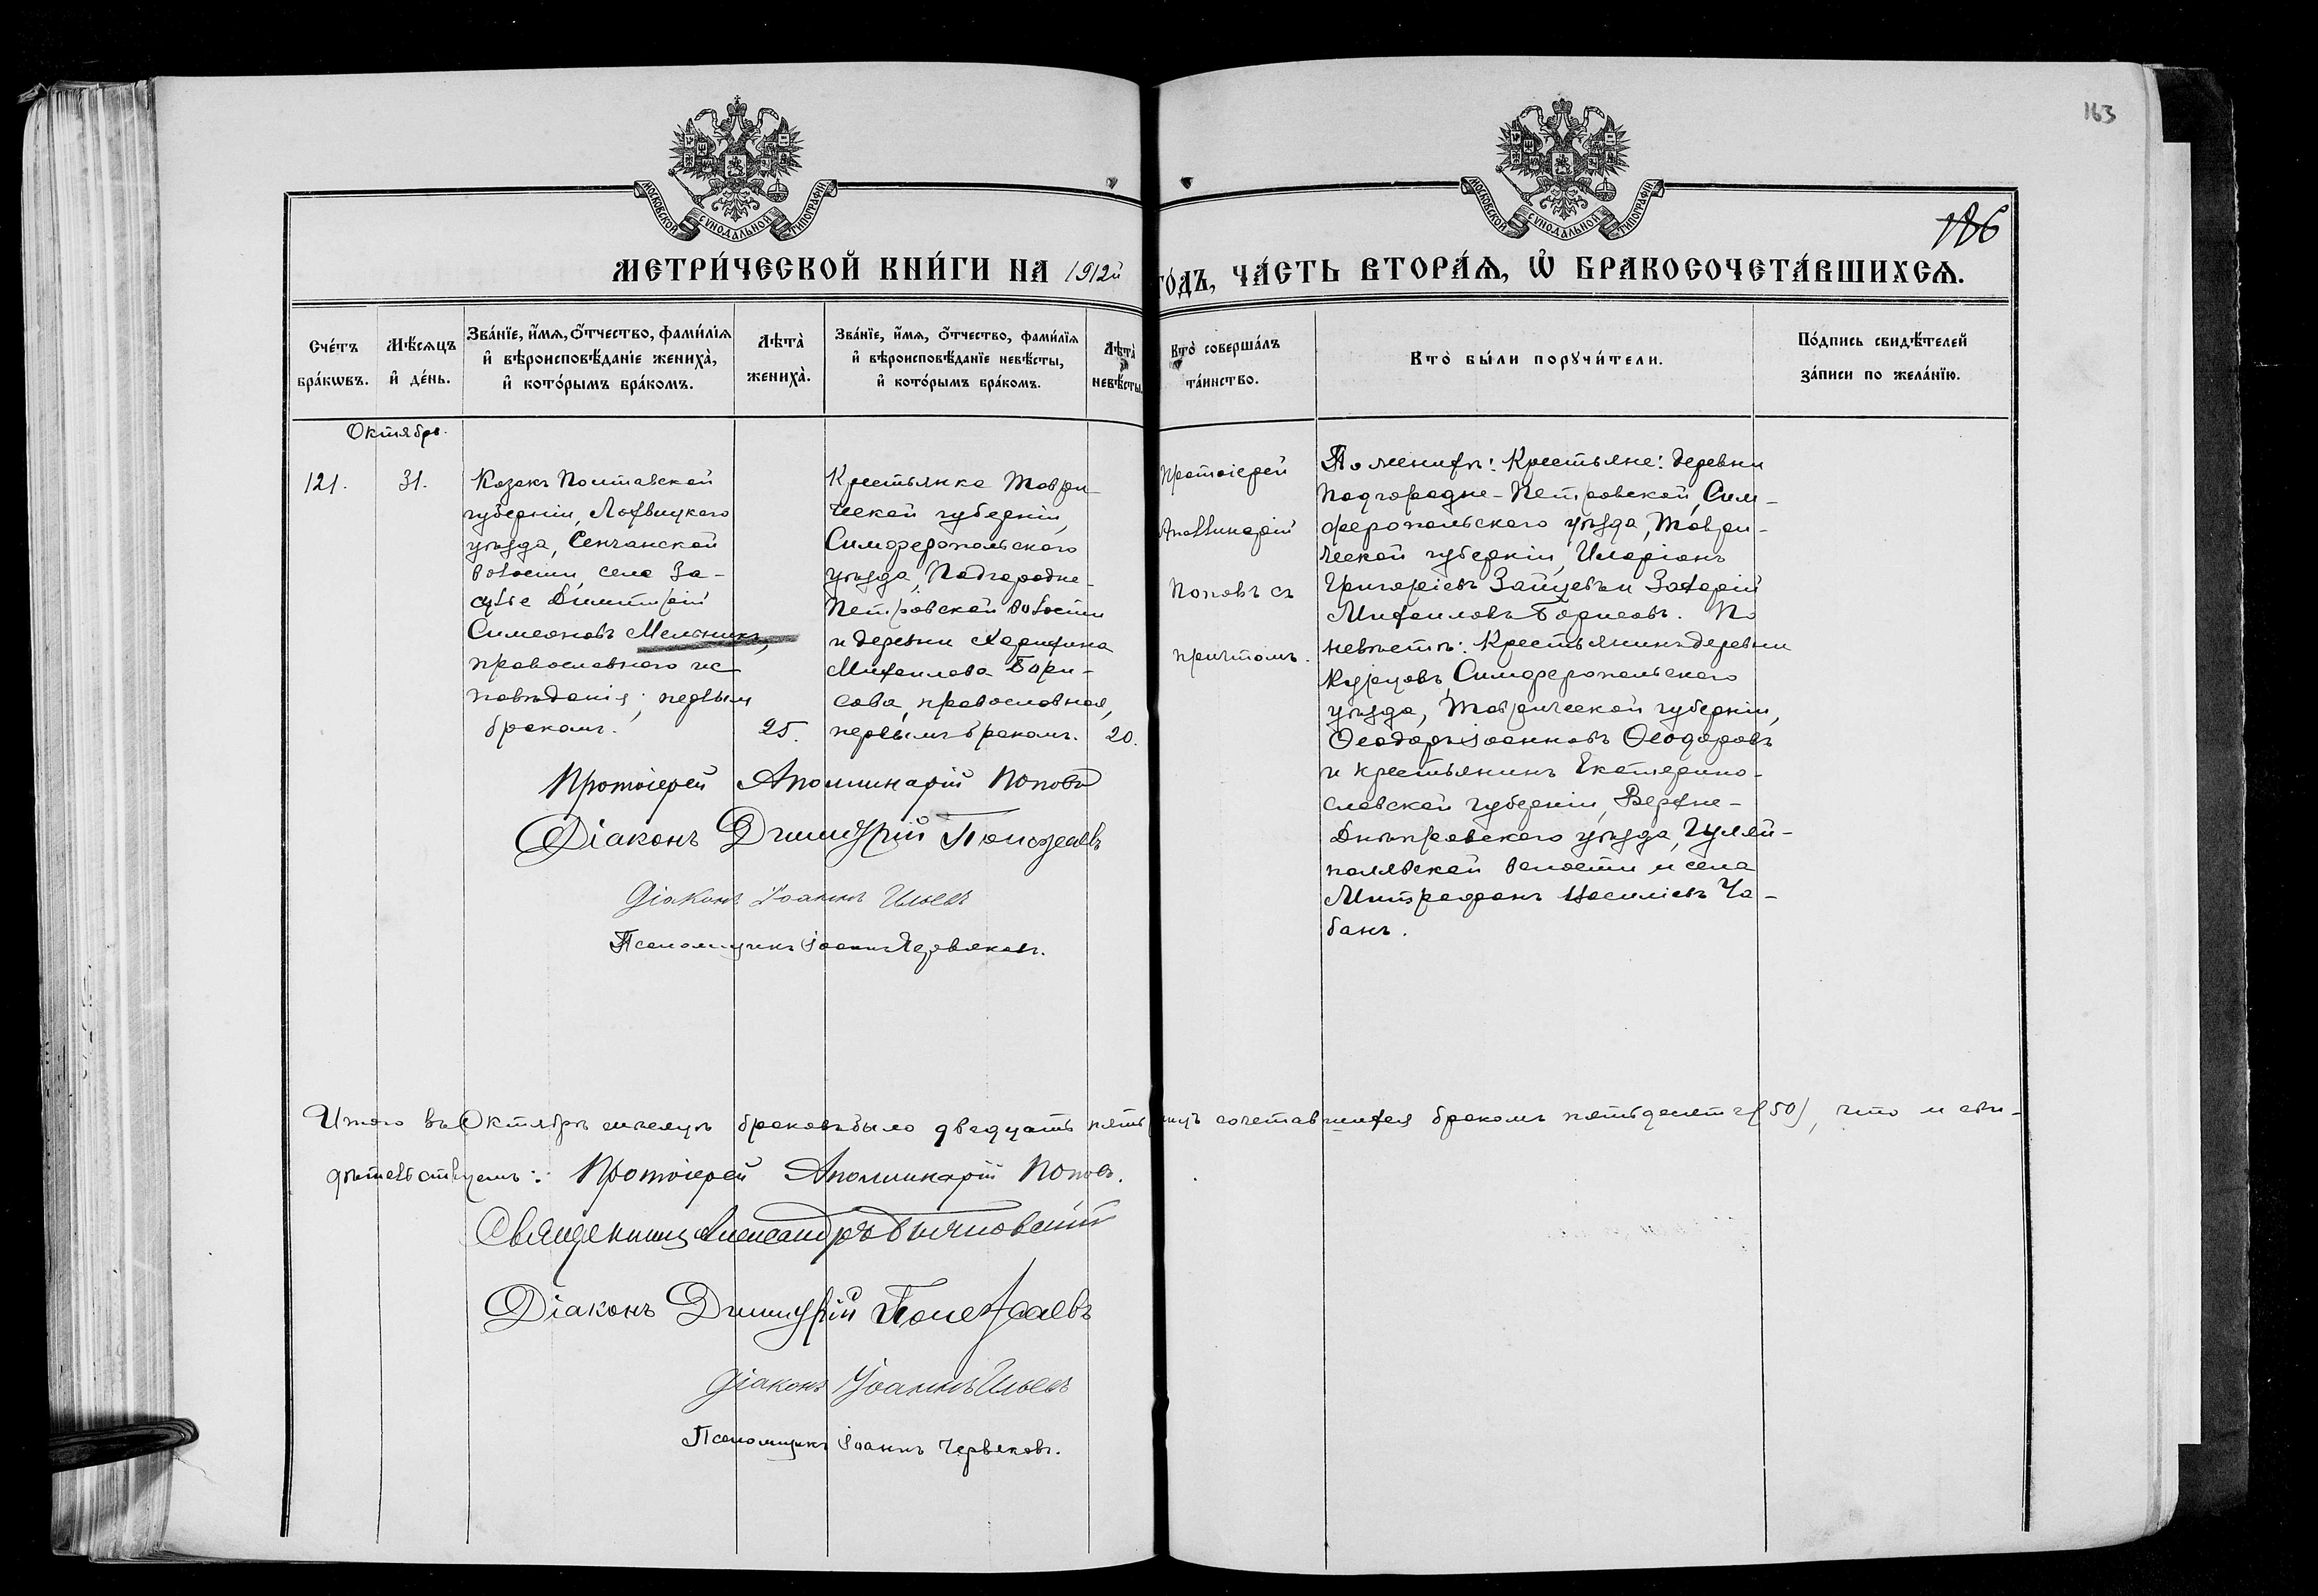 163
МОСКОВСКОЙ СУНОДАЛЬНОЙ ТИПОГРАФІИ
МОСКОВСКОЙ СУНОДАЛЬНОЙ ТИПОГРАФІИ
186
МЕТРИ́ЧЕСКОЙ КНИ́ГИ НА 1912й
ГО́ДЪ, ЧА́СТЬ ВТОРА́Ѧ, Ѽ БРАКОСОЧЕТА́ВШИХСѦ.
Сче́тъ бра́кѡвъ.
Мѣ́сяцъ и҆ де́нь.
Зва́нїе, и҆́мя, ѻ҆́тчество, фами́лїя
и҆ вѣроисповѣ́данїе жениха̀,
и҆ кото́рымъ бра́комъ.
Лѣта̀ жениха̀.
Зва́нїе, и҆́мя, ѻ҆́тчество, фами́лїя
и҆ вѣроисповѣ́данїе невѣ́сты,
и҆ кото́рымъ бра́комъ.
Лѣта̀ невѣ́сты.
Кто̀ соверша́лъ
та́инство.
Кто̀ бы́ли порꙋчи́тели.
По́дпись свидѣ́телей
за́писи по жела́нїю.
Октябрь.
121.
31.
Козакъ Полтавской
губерніи, Лохвицкаго
уѣзда, Сенчанской
волости, села За-
сулье Димитрій
Симеоновъ Мельникъ,
православнаго ис
повѣданія; первым
бракомъ.
25.
Крестьянка Таври-
ческой губерніи,
Симферопольскаго
уѣзда, Подгородне-
Петровской волости
и деревни Харитина
Михаилова Бори-
сова, православная,
первымъ бракомъ.
20.
Протоіерей
Аполлинарій
Поповъ съ
причтомъ.
По женихѣ: Крестьяне: деревни
Подгородне-Петровской, Сим-
феропольскаго уѣзда, Таври-
ческой губерніи, Иларіонъ
Григоріевъ Зайцевъ и Захарій
Михаиловъ Борисовъ. По
невѣстѣ: Крестьянинъ деревни
Курцовъ Симферопольскаго
уѣзда, Таврической губерніи,
Ѳеодоръ Іоанновъ Ѳеодоровъ
и крестьянинъ Екатерино-
славской губерніи, Верхне-
Днѣпровскаго уѣзда, Гуляй-
польской волости и села
Митрофанъ Василіевъ Ча-
банъ.
Протоіерей Аполлинарій Поповъ
Діаконъ Димитрій
Діаконъ Іоаннъ Ильевъ
Псаломщикъ Іоаннъ Червяковъ.
Итого въ Октябрѣ мѣсяцѣ браковъ было двадцать пять лицъ сочетавшихся бракомъ пятьдесятъ (50), что и сви-
дѣтельствуемъ: Протоіерей Аполлинарій Поповъ.
Священникъ Александръ
Діаконъ Димитрій
Діаконъ Іоаннъ Ильевъ
Псаломщикъ Іоаннъ Червяковъ.